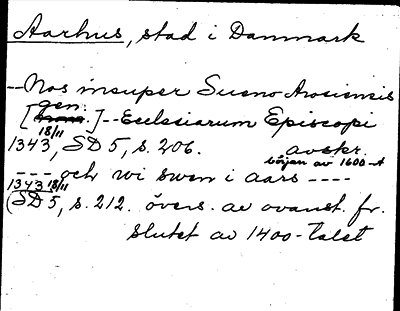 Aarhus, stad i Danmark
--Nos insuper Sueno Arosiensis
gen.
[ ]--Ecclesiarum Episcopi
18/11
1343, SD 5, s. 206. avskr.
början av 1600-t
--- och wi swen i aars ----
1343 18/11
(SD 5, s. 212. övers. av ovanst. fr.
slutet av 1400-talet